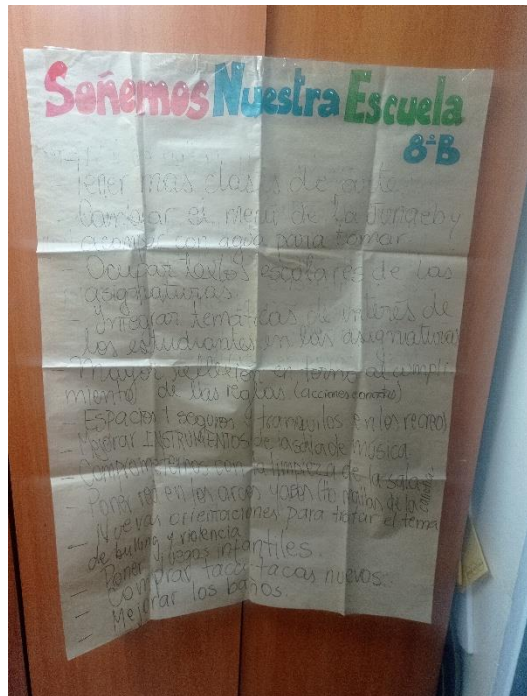 Soñemos Nuestra Escuela
8°B
- Tener más clases de arte
- Cambiar el menú de la Junaeb y
por agua para tomar
- Ocupar textos escolares de las
asignaturas
- Integrar temáticas de interés de
los estudiantes en las asignaturas
- Mayor en torno al cumpli
miento de las reglas (acciones
- Espacios seguros y tranquilos en los recreos
- Mejorar INSTRUMENTOS de la sala de música
- con la limpieza de la sala
- Poner red en los arcos y de la
- Nuevas orientaciones para tratar el tema
de bulling y violencia
- Poner juegos infantiles.
- Comprar taca tacas nuevos.
- Mejorar los baños.